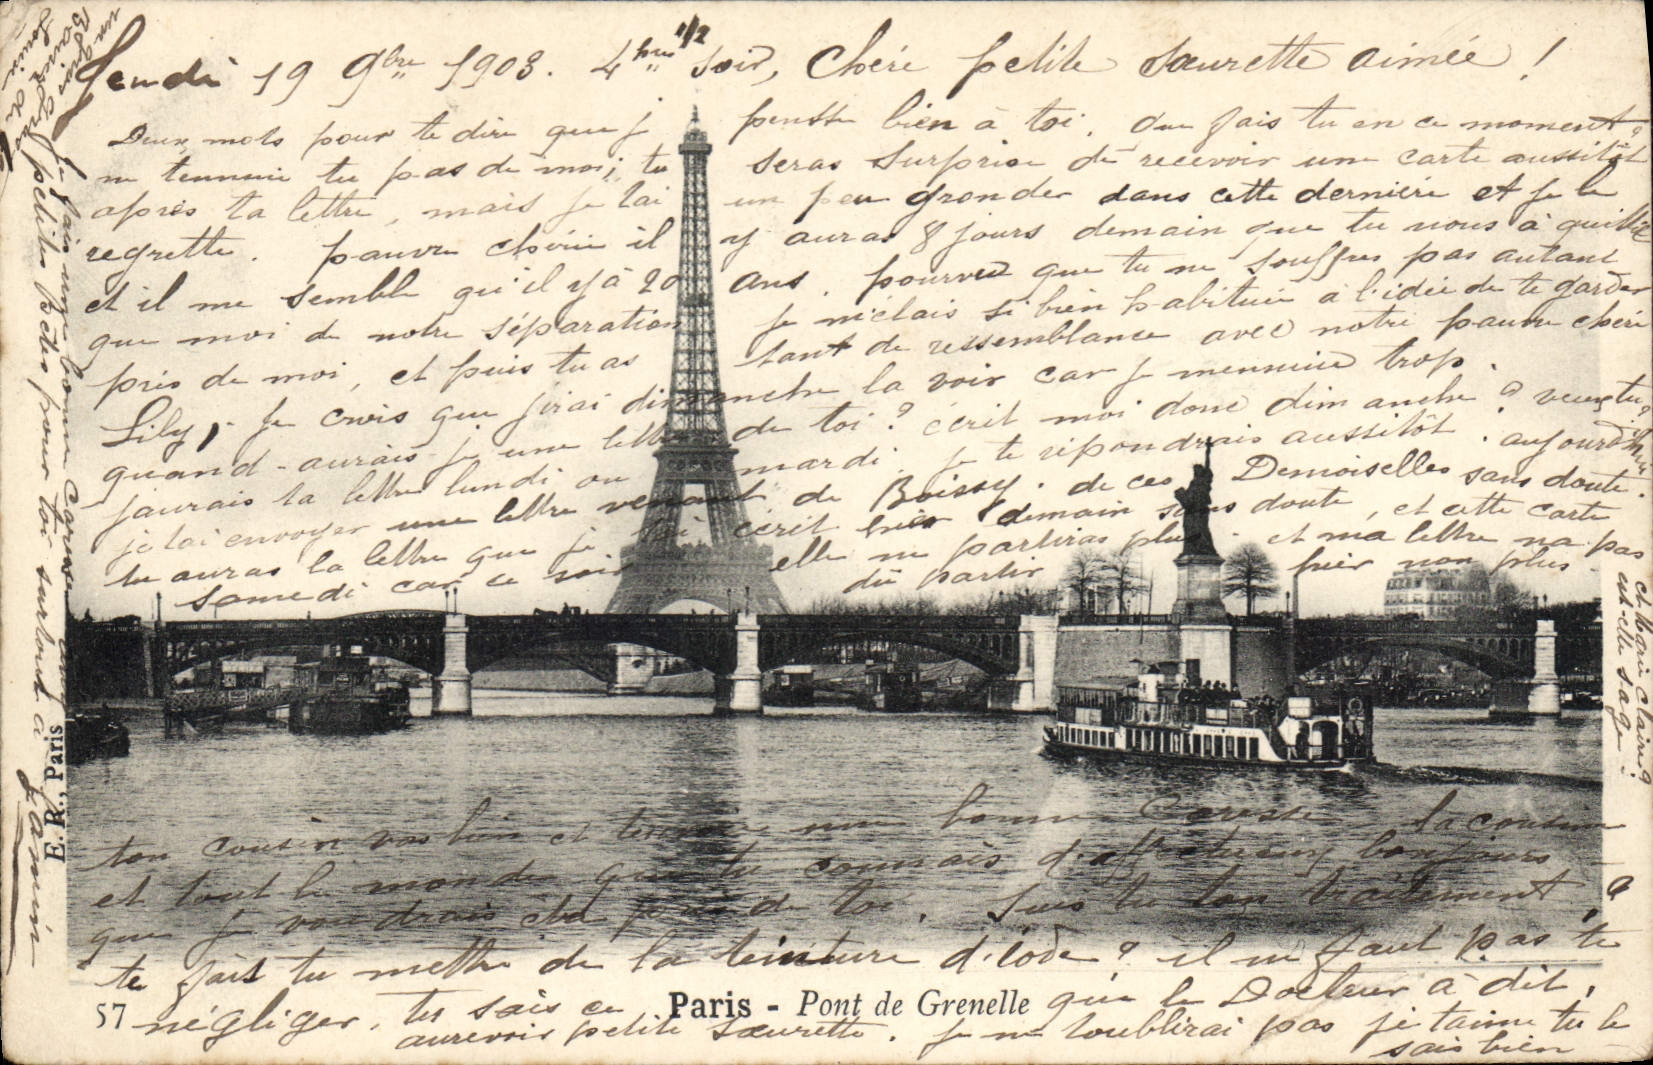 Jeudi 19 9bre 1903. 4 hres 1/2 soir, Chère petite Sœurette aimée !
Deux mots pour te dire que j pensse bien à toi. Que fais tu en ce moment ?
ne tennuie tu pas de moi; tu seras surprise de recevoir une carte aussitôt
après ta lettre, mais je tai un peu gronder dans cette dernière et je le
regrette. pauvre chérie il y auras 8 jours demain que tu nous à quitté
et il me semble qu'il y à 20 ans. pourvu que tu ne souffres pas autant
que moi de notre séparation je m'étais si bien habituée à l'idée de te garder
près de moi, et puis tu as tant de ressemblance avec notre pauvre chère
Lily. Je crois que j'irai dimanche la voir car je mennuie trop.
quand-aurais-je une lettre de toi ? écrit moi donc dimanche ? veux tu ?
jaurais ta lettre lundi ou mardi. je te répondrais aussitôt. aujourd'hui
je tai envoyer une lettre venant de Boissy. de ces Demoiselles sans doute.
tu auras la lettre que je tai écrit hier demain sans doute, et cette carte
samedi car ce soir elle ne partiras plus. et ma lettre na pas
dû partir hier non plus
chérie Claire ?
est-elle sage.
ton cousin vas bien et une bonne Caresse. la cousine
et tout le monde que tu connais d'affectueux bonjours
que je voudrais être près de toi. Suis tu ton traitement ?
te fais tu mettre de la teinture d'iode ? il ne faut pas te
négliger, tu sais ce que le Docteur à dit,
aurevoir petite Sœurette. je ne toublirai pas je taime tu le
sais bien
je fais une bonne Caresse
petites Bêtes pour toi surtout à
Jamin
E. R., Paris
57 Paris - Pont de Grenelle